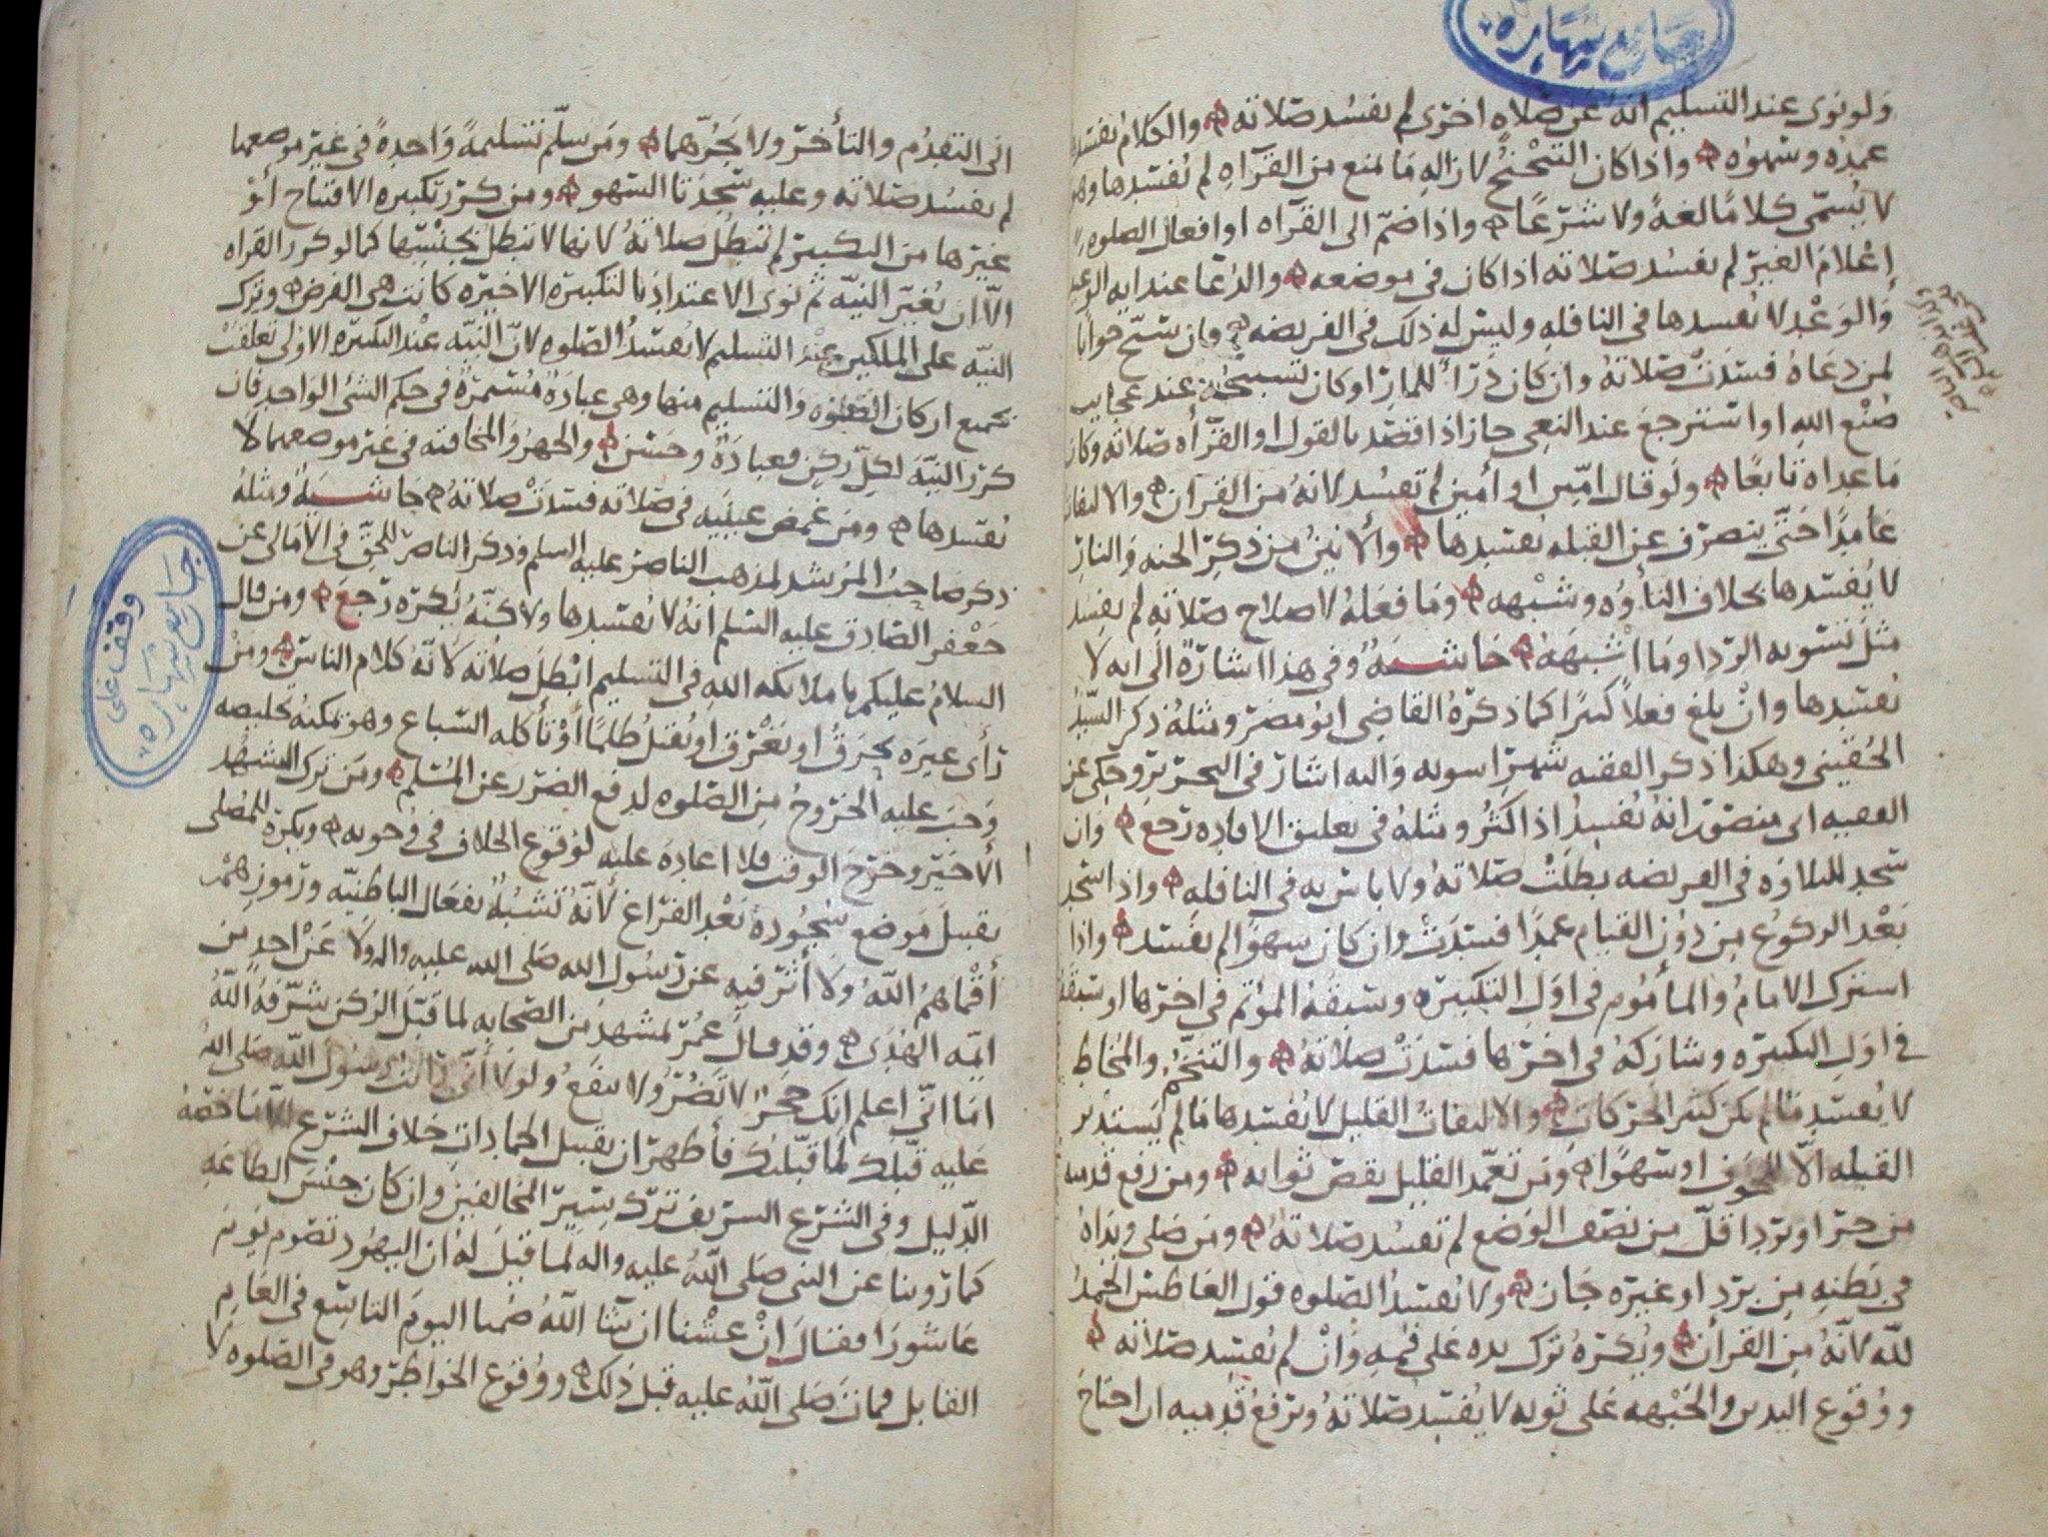 جامع شهاره
ولو نوى عند التسليم انه عن صلاه اخرى لم تفسد صلاته والكلام تفسد
عمده وسهوه واذا كان التنحنح لازاله ما منع من القرآه لم تفسدها وهو
لا يسمى كلاما لغة ولا شرعا واذا ضم الى القرآه او افعال الصلوه
إعلام الغير لم تفسد صلاته اذا كان في موضعه والدعا عند ايه الوعيد
والوعد لا تفسدها في النافله وليس له ذلك في الفريضه وان سبح جوابا
لمن دعاه فسدت صلاته وان كان درأ للمار او كان تسبيحه عند عجايب
صنع الله او استرجع عند النعي جاز اذا قصد بالقول او القرأه صلاته وكان
ما عداه تابعا ولو قال امين او أمين لم تفسد لانه من القرآن والالتفات
عامدا حتى ينصرف عن القبله تفسدها والأنين من ذكر الجنه والنار
لا يفسدها بخلاف التأوه وشبهه وما فعله لاصلاح صلاته لم تفسد
مثل تسويه الردا وما اشبهه حاشيه وفي هذا اشارة الى انه لا
تفسدها وان بلغ فعلا كثيرا كما ذكره القاضي ابو مضر ومثله ذكر السيد
الحقيني وهكذا ذكر الفقيه شهراسويه واليه اشار في التحرير وحكى عن
الفقيه ابى منصور انه تفسد اذا كثر ومثله في تعليق الافاده رجع وان
سجد للتلاوه في الفريضه بطلت صلاته ولا باس به في النافله واذا سجد
بعد الركوع من دون القيام عمدا فسدت وان كان سهوا لم تفسد واذا
اشترك الامام والمأموم في اول التكبيره وسبقه المؤتم في اخرها او سبقه
في اول التكبيره وشاركه في اخرها فسدت صلاته والتنخم والمخاط
لا تفسد ما لم يكن كثير الحركات والالتفات القليل لا تفسدها ما لم يستدبر
القبله الا لخوف او سهوا ومن تعمد القليل نقص ثوابه ومن رفع قدميه
من حر او برد اقل من نصف الوضع لم تفسد صلاته ومن صلى ويداه
في بطنه من برد او غيره جاز ولا تفسد الصلوه قول العاطس الحمد
لله لانه من القرأن ويكره ترك يده على فمه وان لم تفسد صلاته
ووقوع اليدين والجبهه على ثوبه لا يفسد صلاته ويرفع قدميه ان احتاج
الى التقدم والتأخر ولا يجرهما ومن سلم تسليمة واحدة في غير موضعها
لم تفسد صلاته وعليه سجدتا السهو ومن كرر تكبيره الافتتاح أو
غيرها من التكبير لم تبطل صلاته لانها لا تبطل بجنسها كما لو كرر القراه
الا ان يغير النيه ثم نوى الاعتداد بالتكبيره الاخيره كانت هي الفرض وترك
النيه على الملكين عند التسليم لا تفسد الصلوه لان النيه عند التكبيره الاولى تعلقت
بجميع اركان الصلوه والتسليم منها وهي عبادة مستمرة في حكم الشئ الواحد فان
كرر النيه لكل ركن فعبادة وحسن والجهر والمخافته في غير موضعهما لا
تفسدها ومن غمض عينيه في صلاته فسدت صلاته حاشيه ومثله
ذكر صاحب المرشد لمذهب الناصر عليه السلم وذكر الناصر للحق في الامالى عن
جعفر الصادق عليه السلم انه لا تفسدها ولاكنه يكره رجع ومن قال
السلام عليكم يا ملائكه الله في التسليم ابطل صلاته لانه كلام الناس ومن
رأى غيره يحرق او يغرق او يقتل ظلما أو تأكله السباع وهو يمكنه تخليصه
وجب عليه الخروج من الصلوه لدفع الضرر عن المسلم ومن ترك التشهد
الأخير وخرج الوقت فلا اعاده عليه لوقوع الخلاف في وجوبه ويكره للمصلى
تقبيل موضع سجوده بعد الفراغ لأنه تشبه بفعال الباطنيه ورموزهم
أقماهم الله ولا أثر فيه عن رسول الله صلى الله عليه واله ولا عن احد من
ايمه الهدى وقد قال عمر لمشهد من الصحابه لما قبل الركن شرفه الله
اما اني اعلم انك حجر لا تضر ولا تنفع ولولا أني رأيت رسول الله صلى الله
عليه قبلك لما قبلتك فأظهر ان تقبيل الجمادات خلاف الشرع الا ما خصه
الدليل وفي الشرع الشريف ترك سير المخالفين وان كان جنس الطاعه
كما روينا عن النبي صلى الله عليه واله لما قيل له ان اليهود تصوم يوم
عاشورا فقال ان عشنا ان شا الله صمنا اليوم التاسع في العام
القابل فمات صلى الله عليه قبل ذلك ووقوع الخواطر وهو في الصلوه لا
وقف على
جامع شهاره